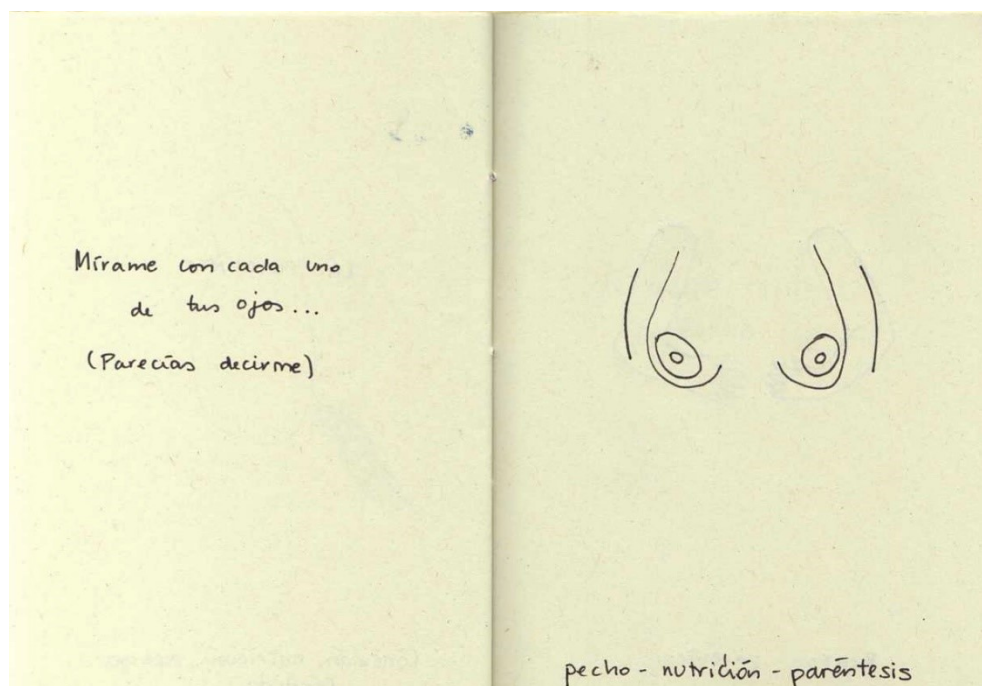 Mírame con cada uno
de tus ojos...
(Parecías decirme)
pecho - nutrición - paréntesis